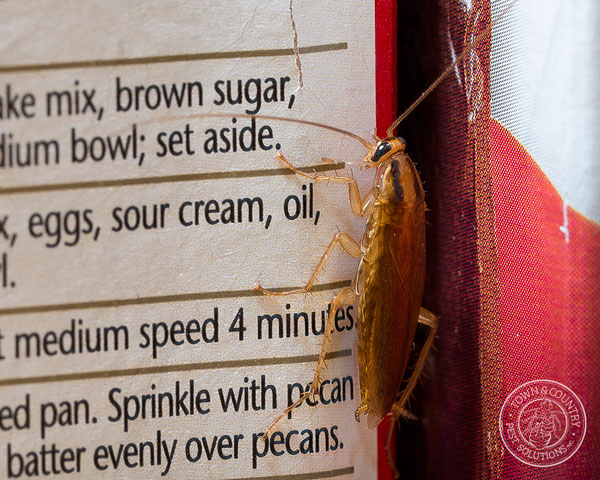 ake mix, brown sugar,
dium bowl; set aside.
x, eggs, sour cream, oil,
l.
t medium speed 4 minutes.
ed pan. Sprinkle with pecan
batter evenly over pecans.
TOWN & COUNTRY
PEST SOLUTIONS INC.